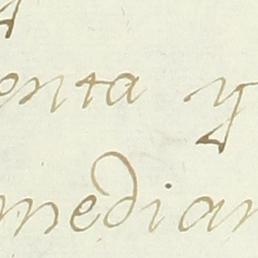 onta y
median